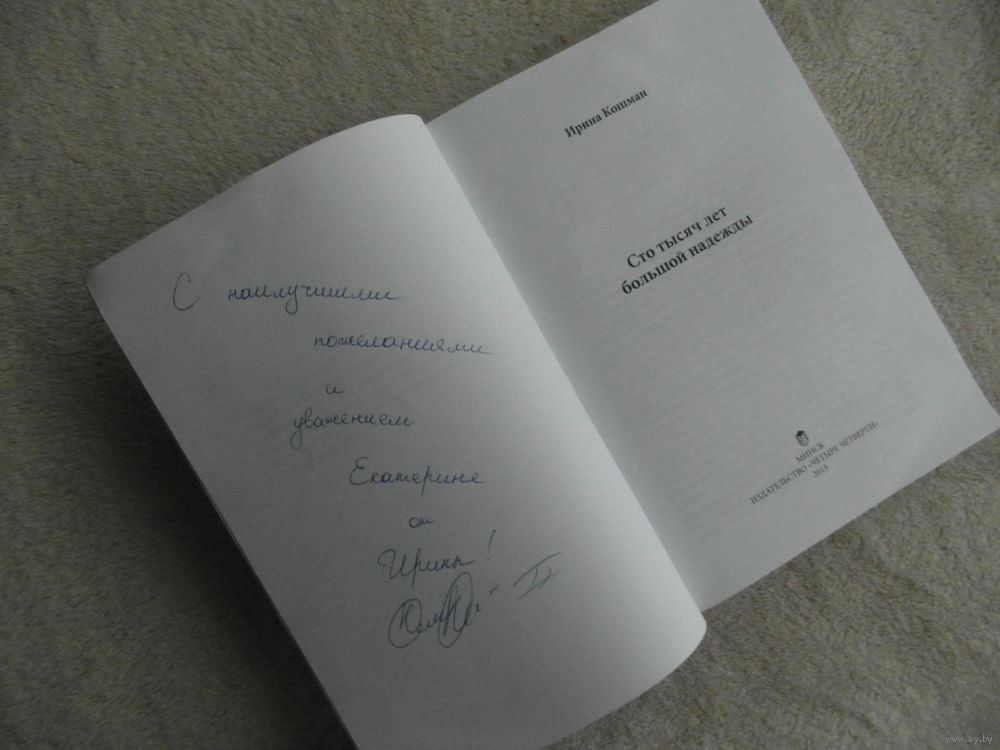 С наилучшими
пожеланиями
и
уважением
Екатерине
от
Ирины!
Ирина Кошман
Сто тысяч лет
большой надежды
МИНСК
ИЗДАТЕЛЬСТВО «ЧЕТЫРЕ ЧЕТВЕРТИ»
2013
www.ay.by